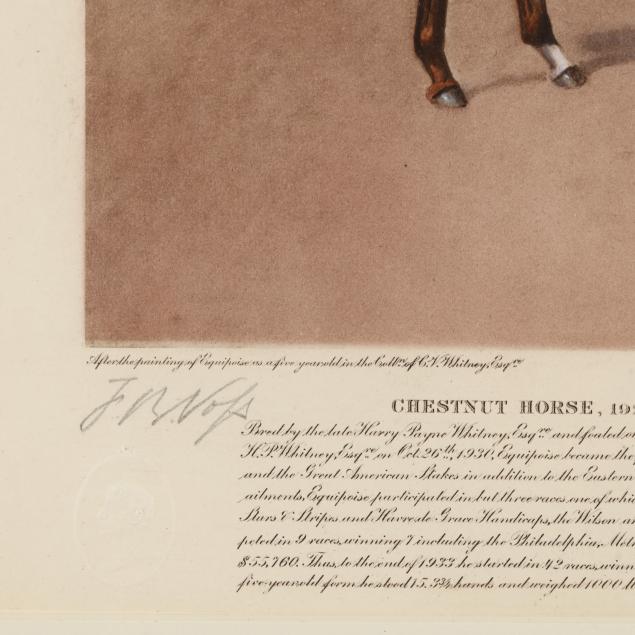 After the painting of Equipoise as a five year old in the Collⁿ. of C.V. Whitney, Esqʳᵉ
F B Voss
CHESTNUT HORSE, 19
Bred by the late Harry Payne Whitney, Esqʳᵉ and foaled on
H.P. Whitney, Esqʳᵉ, on Oct. 26ᵗʰ, 1930, Equipoise became the
and the Great American Stakes in addition to the Eastern
ailments, Equipoise participated in but three races one of whic
Stars & Stripes and Havre de Grace Handicaps, the Wilson an
peted in 9 races, winning 7 including the Philadelphia, Met
$55,760. Thus, to the end of 1933 he started in 42 races, winn
five year old form he stood 15.3¾ hands and weighed 1000 lb